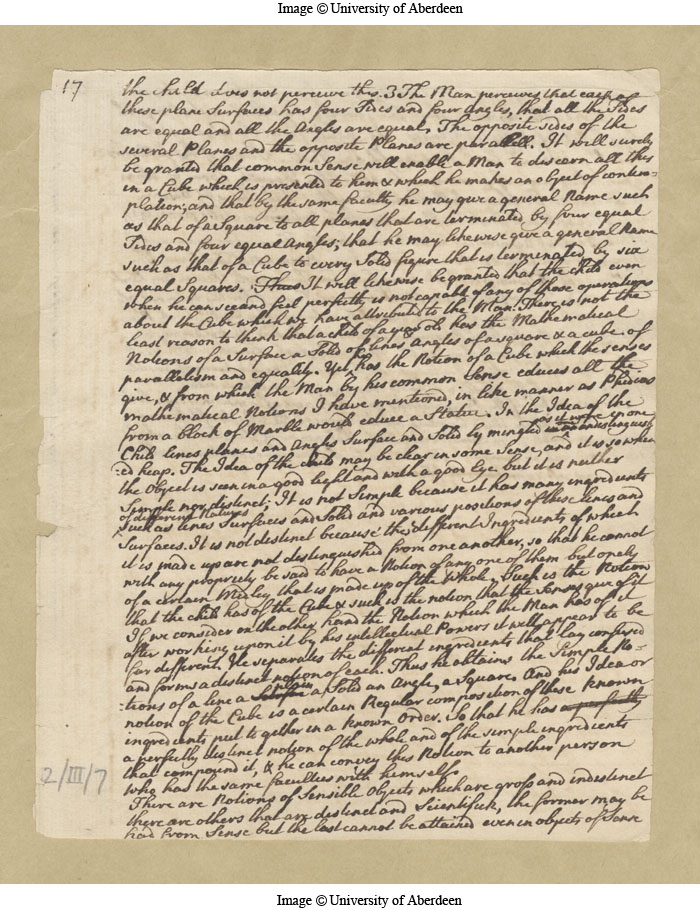 Image © University of Aberdeen
17
the child does not perceive this. 3 The Man perceives that each of
these plane Surfaces has four Sides and four angles, that all the Sides
are equal and all the Angles are equal, The opposite sides of the
several Planes and the opposite Planes are parallell. It will surely
be granted that common Sense will enable a Man to discern all this
in a Cube which is presented to him & which he makes an object of contem-
plation; and that by the same faculty he may give a general Name such
as that of a Square to all planes that are terminated by four equal
Sides and four equal Angles; that he may likewise give a general Name
such as that of a Cube to every Solid figure that is terminated by six
equal Squares. Thus It will likewise be granted that the child even
when he can see and feel perfectly is not capable of any of those operations
about the Cube which we have attributed to the Man. There is not the
least reason to think that a child of a year old has the Mathematical
Notions of a Surface a Solid of lines Angles of a square & a cube of
parallelism and equality. Yet he has the Notion of a Cube which the senses
give, & from which the Man by his common Sense educes all the
mathematical Notions I have mentioned, in like manner as Phidias
from a block of Marble would educe a Statue. In the Idea of the
Child lines planes and Angles Surface and Solid ly mingled as it were in one undistinguish
:ed heap. The Idea of the child may be clear in some Sense, and it is so when
the Object is seen in a good light and with a good Eye but it is neither
Simple nor distinct; It is not Simple because it has many ingredients
of different natures
such as lines Surfaces and Solid and various positions of these lines and
Surfaces. It is not distinct because the different Ingredients of which
it is made up are not distinguished from one another, so that he cannot
with any propriety be said to have a Notion of any one of them but onely
of a certain Medley that is made up of the whole. Such is the Notion
that the child has of the Cube & such is the notion that the Senses give of it
If we consider on the other hand the Notion which the Man has of it
after working upon it by his intellectual Powers it will appear to be
far different. He separates the different ingredients that lay confused
and forms a distinct notion of each. Thus he attains the Simple No-
:tions of a line a plain a Solid an Angle, a Square, And his Idea or
notion of the Cube is a certain Regular composition of these known
ingredients put together in a known Order. So that he has a perfectly
a perfectly distinct notion of the whole and of the simple ingredients
that compound it, & he can convey this Notion to another person
who has the same faculties with himself.
There are Notions of Sensible Objects which are gross and indistinct
there are others that are distinct and Scientifick, the former may be
had from Sense but the last cannot be attained even in objects of Sense
2/III/7
Image © University of Aberdeen